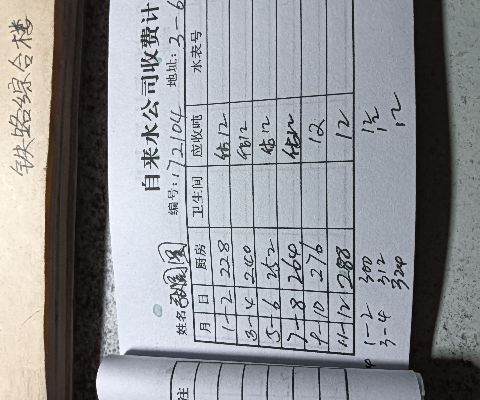 铁路综合楼
自来水公司收费计
编号:172104 地址:3-6
姓名
月 日 厨房 卫生间 应收吨 水表号
1-2 228 估12
3-4 240 估12
5-6 252 估12
7-8 264 估12
9-10 276 12
11-12 288 12
1-2 300 12
3-4 312 12
324
注